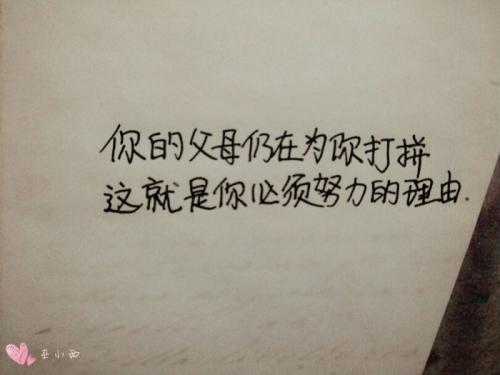 你的父母仍在为你打拼
这就是你必须努力的理由.
巫小西